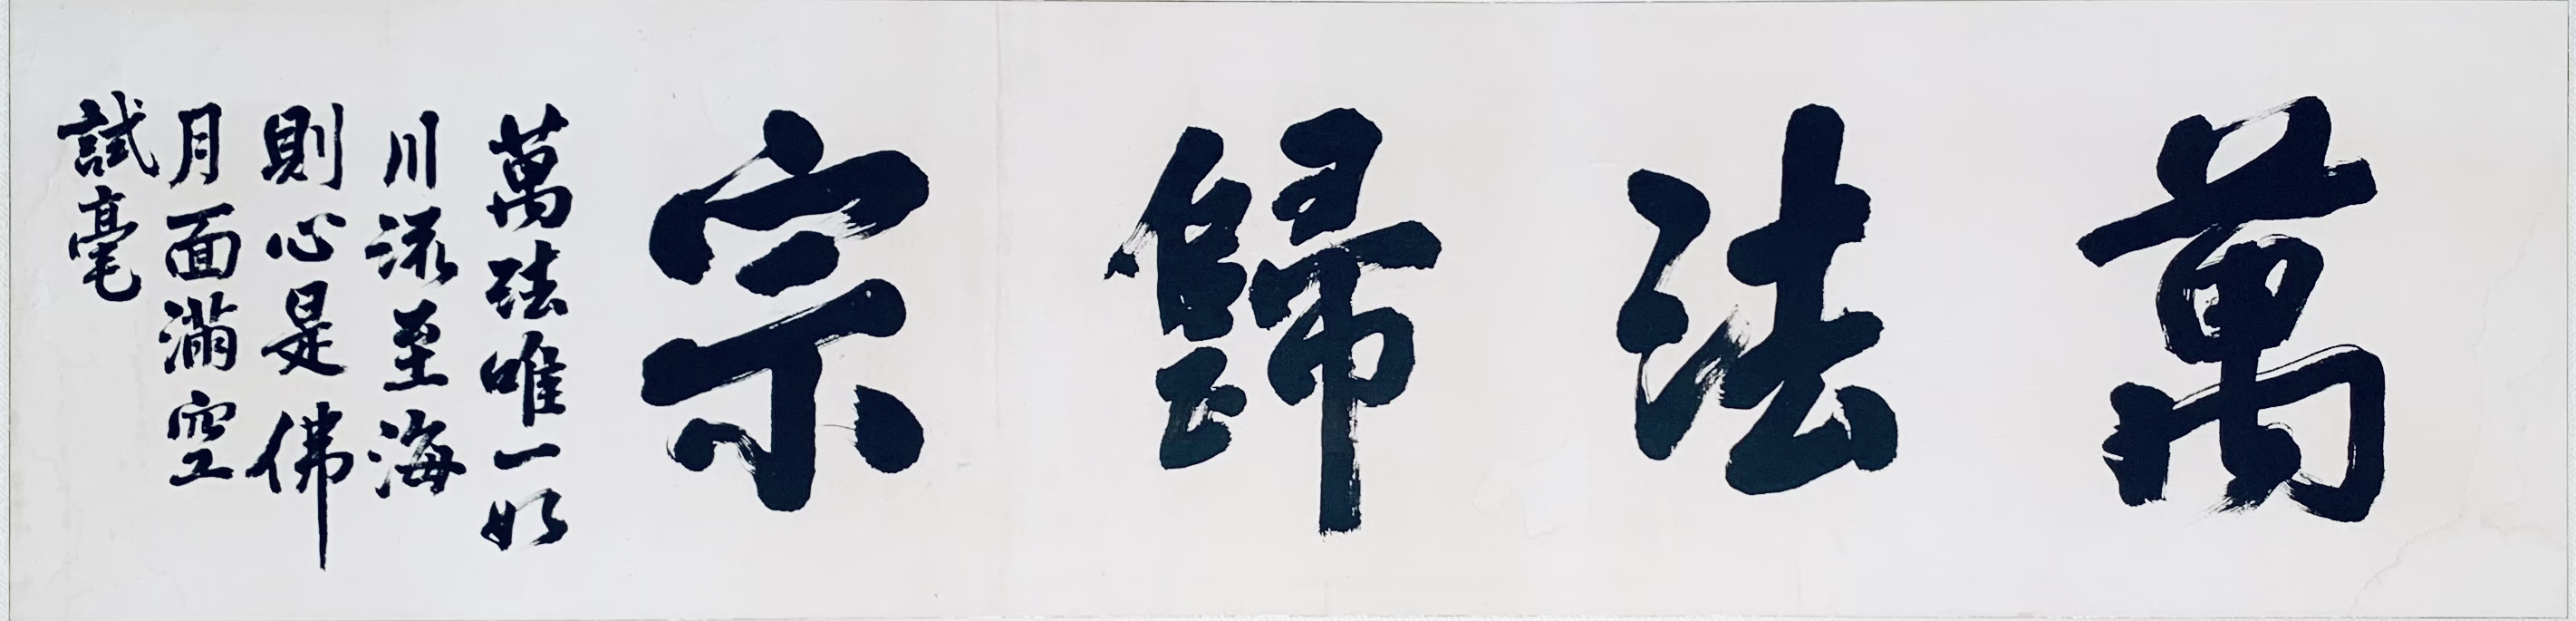 萬法歸宗
萬法唯一如
川流至海
則心是佛
月面滿空
試毫